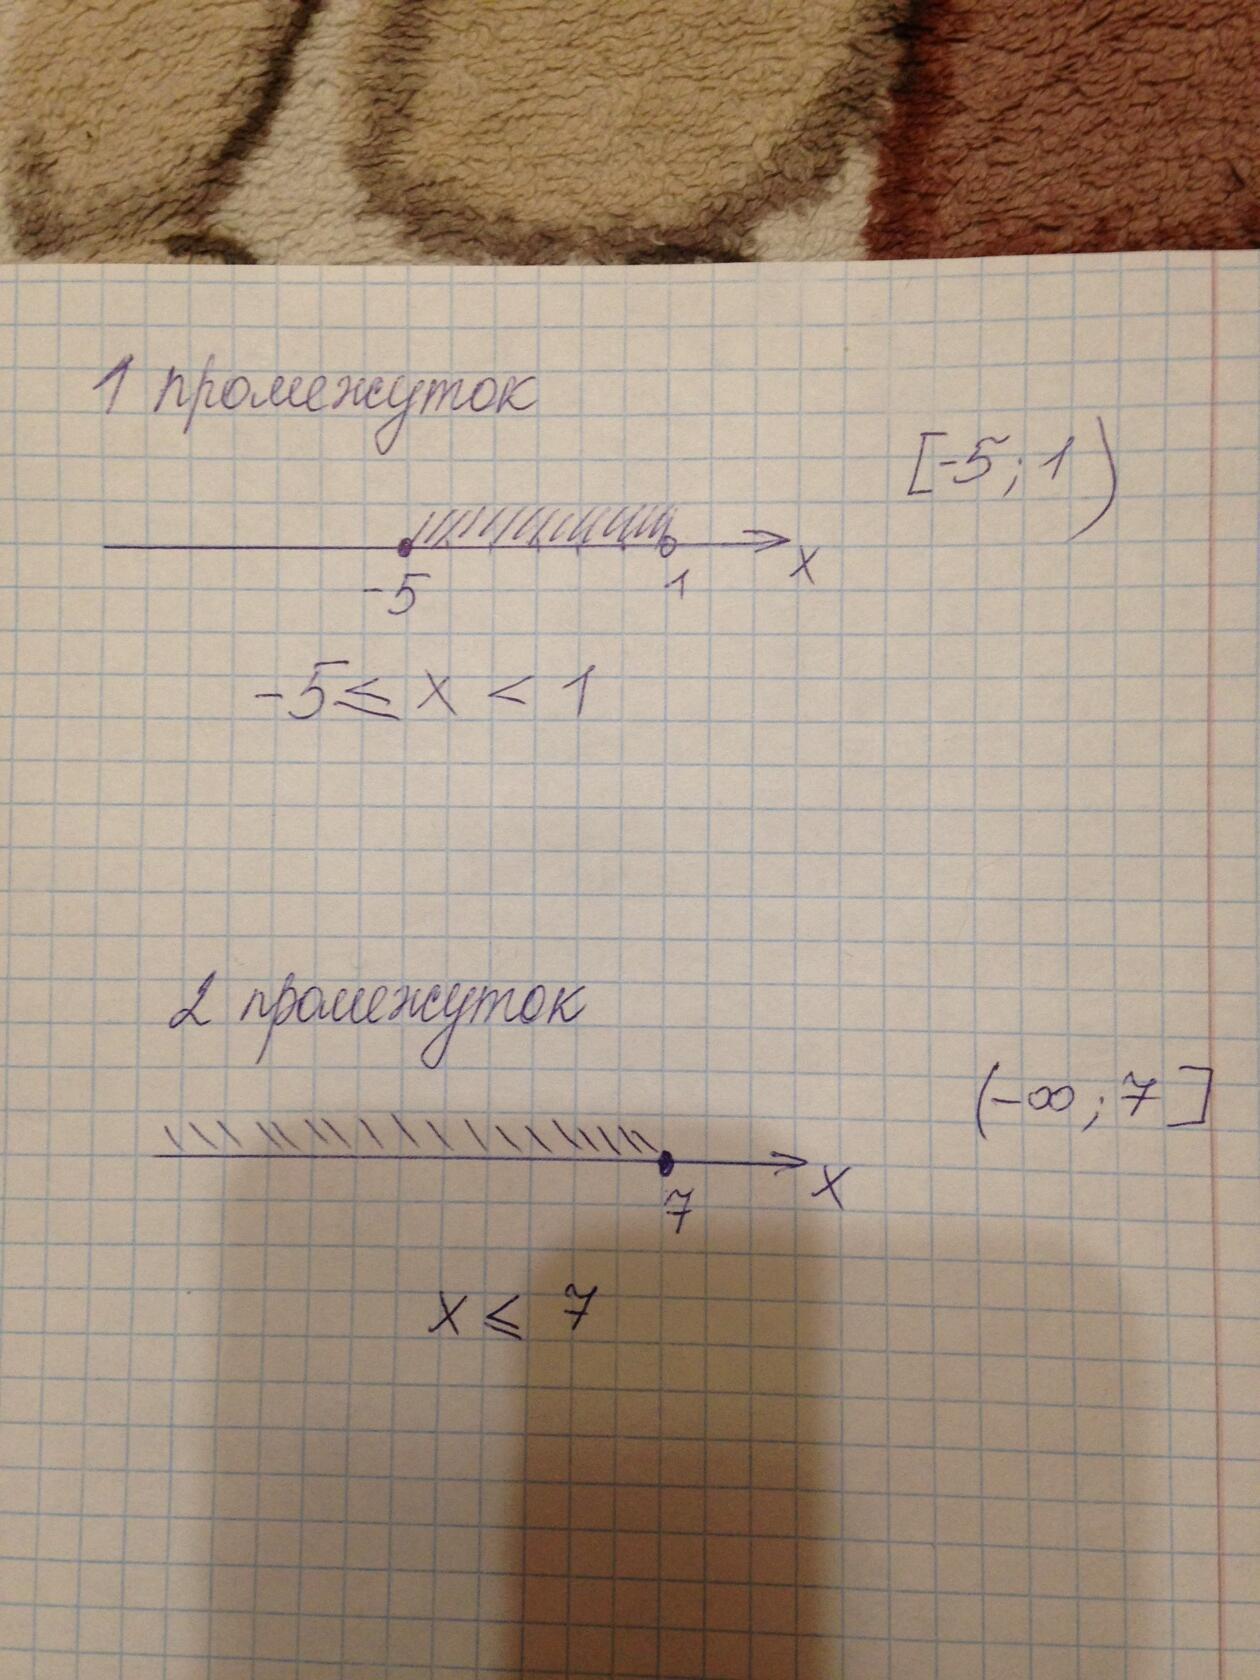 1 промежуток
[-5; 1)
-5 1 x
-5 ≤ x < 1
2 промежуток
(-∞; 7]
7 x
x ≤ 7